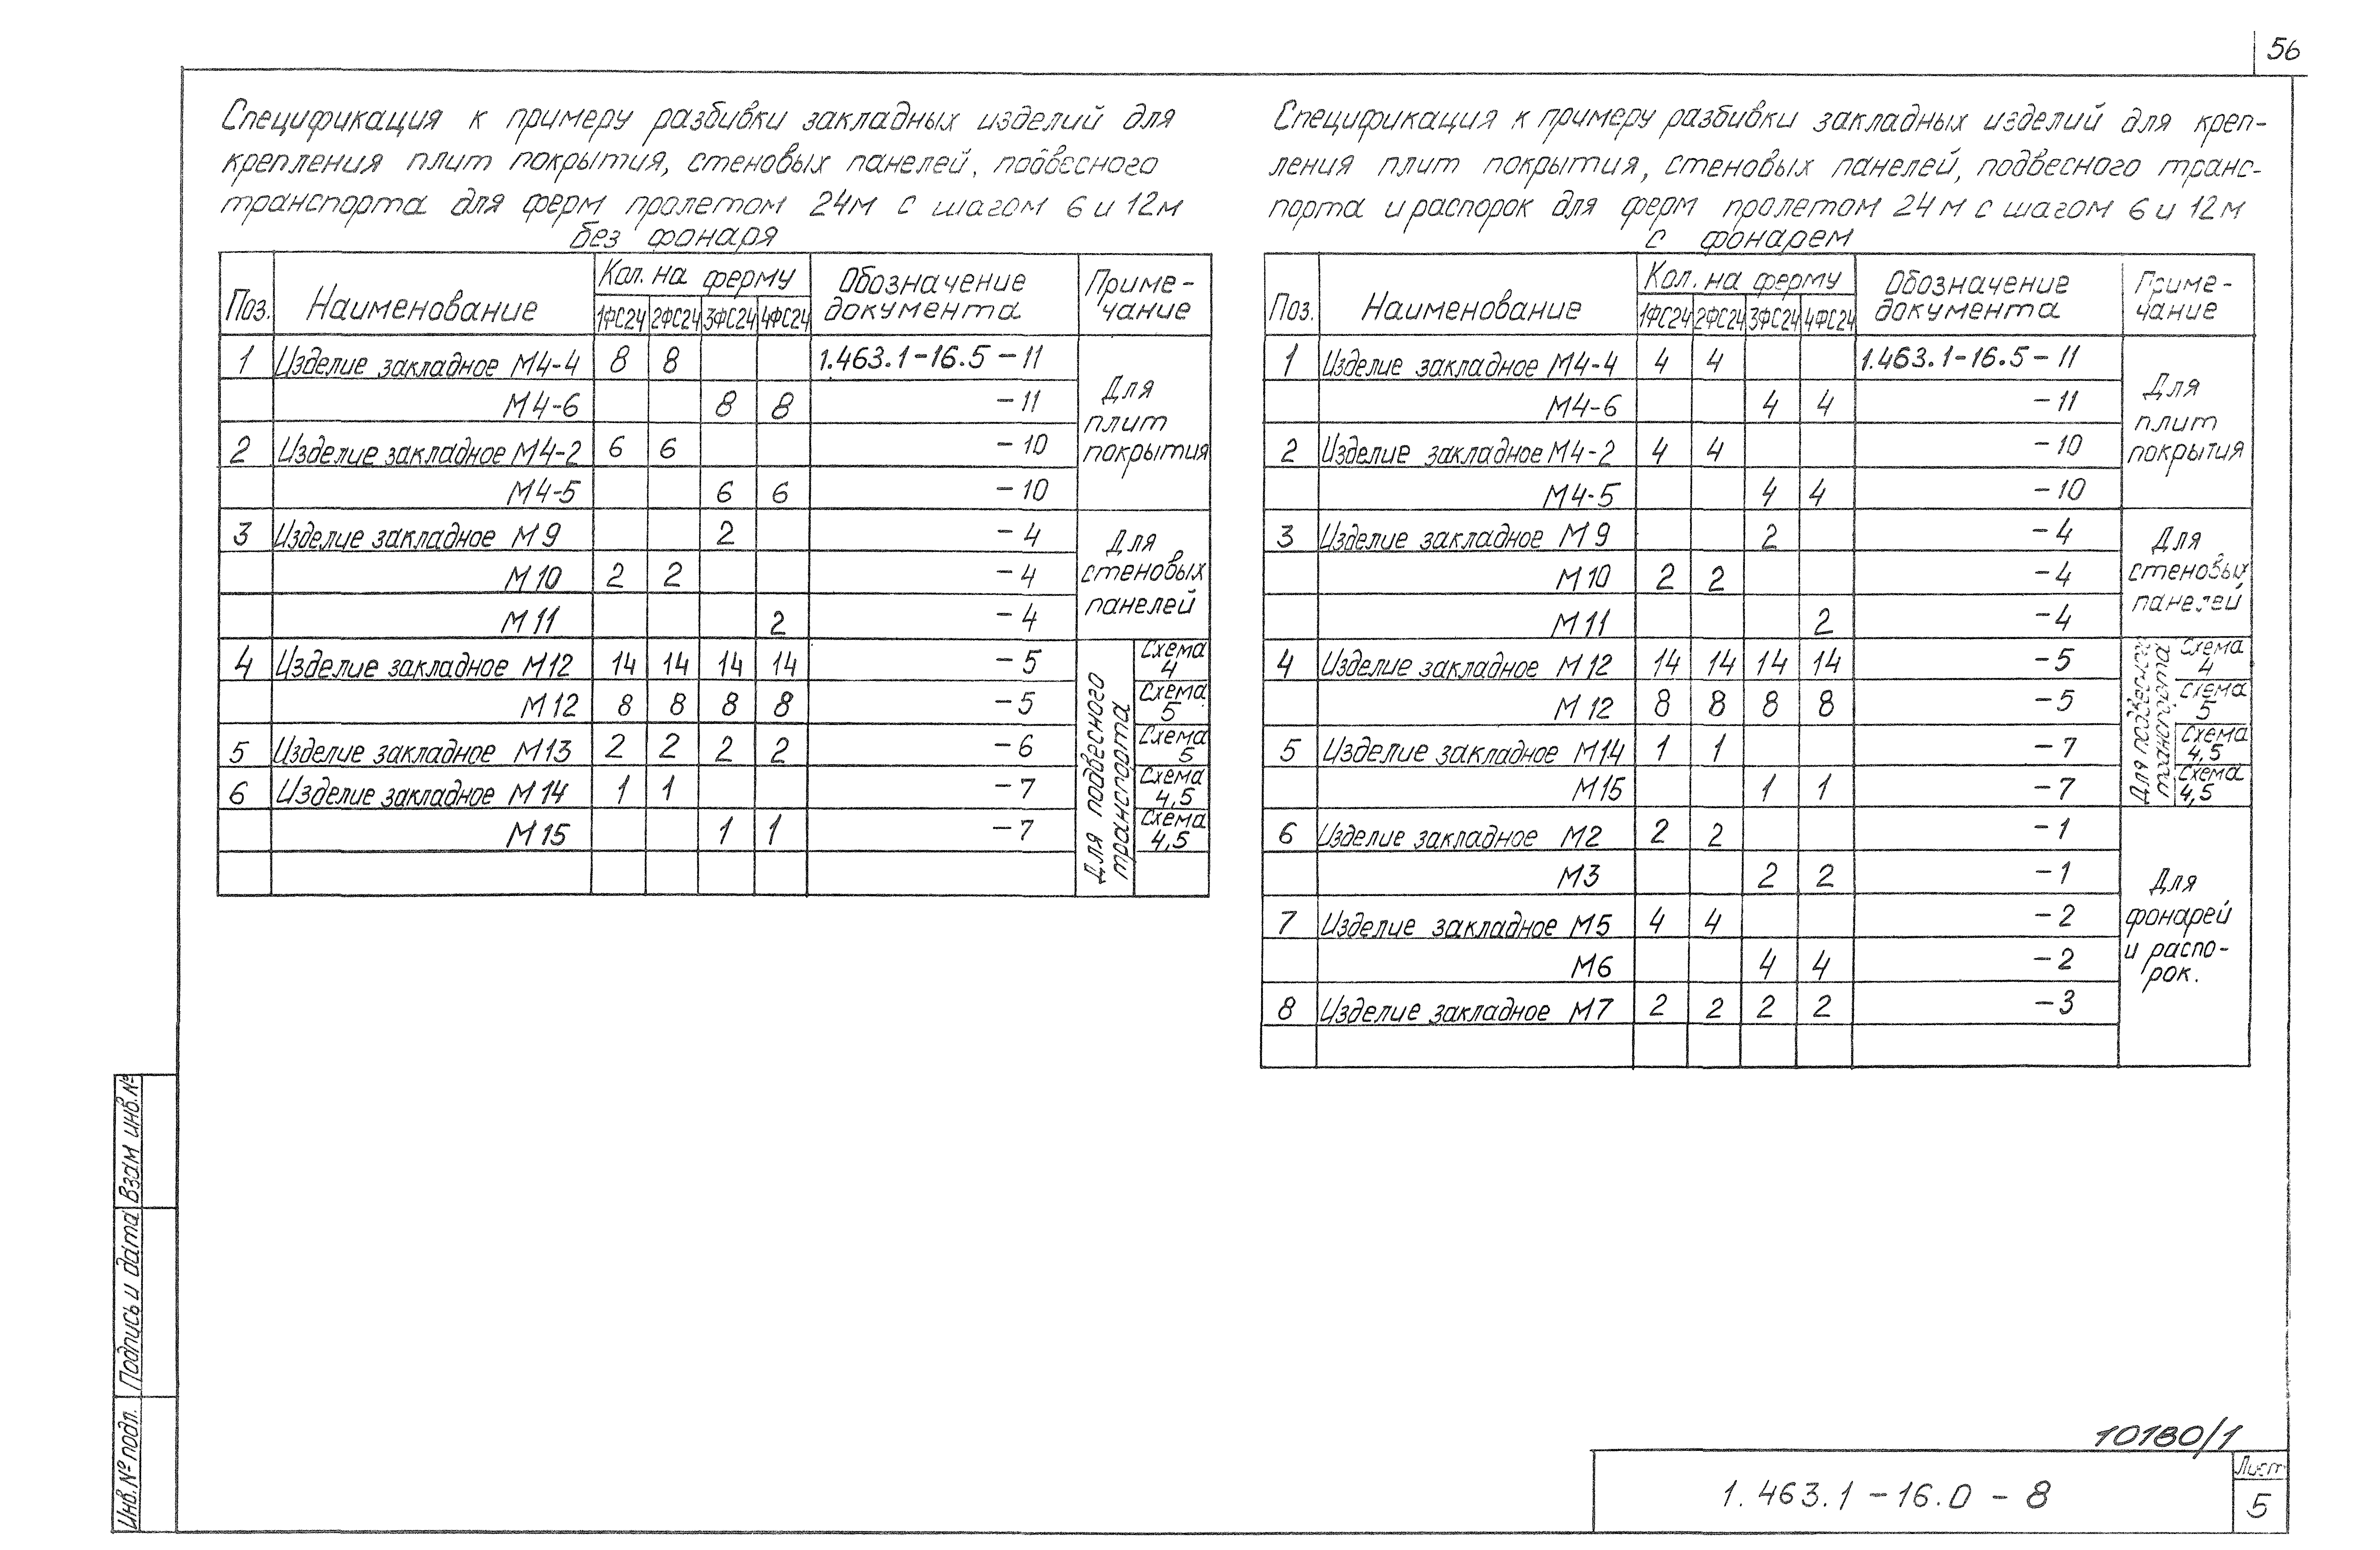 56
Спецификация к примеру разбивки закладных изделий для
крепления плит покрытия, стеновых панелей, подвесного
транспорта для ферм пролетом 24м с шагом 6 и 12м
без фонаря
Поз. Наименование Кол. на ферму Обозначение документа Приме-чание
1ФС24 2ФС24 3ФС24 4ФС24
1 Изделие закладное М4-4 8 8 1.463.1-16.5-11
М4-6 8 8 -11
2 Изделие закладное М4-2 6 6 -10
М4-5 6 6 -10
Для
плит
покрытия
3 Изделие закладное М9 2 -4
М10 2 2 -4
М11 2 -4
Для
стеновых
панелей
4 Изделие закладное М12 14 14 14 14 -5 Схема 4
М12 8 8 8 8 -5 Схема 5
5 Изделие закладное М13 2 2 2 2 -6 Схема 5
6 Изделие закладное М14 1 1 -7 Схема 4,5
М15 1 1 -7 Схема 4,5
Для подвесного
транспорта
Спецификация к примеру разбивки закладных изделий для креп-
ления плит покрытия, стеновых панелей, подвесного транс-
порта и распорок для ферм пролетом 24м с шагом 6 и 12м
с фонарем
Поз. Наименование Кол. на ферму Обозначение документа Приме-чание
1ФС24 2ФС24 3ФС24 4ФС24
1 Изделие закладное М4-4 4 4 1.463.1-16.5-11
М4-6 4 4 -11
2 Изделие закладное М4-2 4 4 -10
М4-5 4 4 -10
Для
плит
покрытия
3 Изделие закладное М9 2 -4
М10 2 2 -4
М11 2 -4
Для
стеновых
панелей
4 Изделие закладное М12 14 14 14 14 -5 Схема 4
М12 8 8 8 8 -5 Схема 5
5 Изделие закладное М14 1 1 -7 Схема 4,5
М15 1 1 -7 Схема 4,5
Для подвесного
транспорта
6 Изделие закладное М2 2 2 -1
М3 2 2 -1
7 Изделие закладное М5 4 4 -2
М6 4 4 -2
8 Изделие закладное М7 2 2 2 2 -3
Для
фонарей
и распо-
рок.
Взам инв.№
Подпись и дата
Инв.№ подл.
10180/1
1.463.1-16.0-8
Лист
5